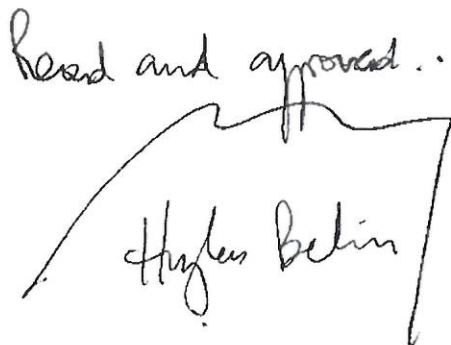 Read and approved..
Hughes Belin